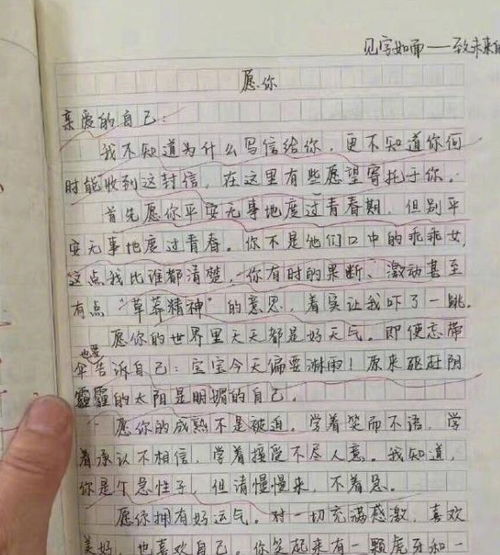 见字如面——致未来的
愿你
亲爱的自己：
我不知道为什么写信给你，更不知道你何
时能收到这封信，在这里有些愿望寄托于你。
首先愿你平安无事地度过青春期，但别平
安无事地度过青春。你不是他们口中的乖乖女，
这点我比谁都清楚，你有时的果断、激动甚至
有点“草莽精神”的意思，着实让我吓了一跳。
愿你的世界里天天都是好天气。即便忘带
伞也要告诉自己：宝宝今天偏要淋雨！原来驱赶阴
霾的太阳是明媚的自己。
愿你的成熟不是被迫。学着笑而不语，学
着承认不相信，学着接受不尽人意。我知道，
你是个急性子，但请慢慢来，不着急。
愿你拥有好运气。对一切充满感激，喜欢
美好，也喜欢自己。你笑起来有一颗虎牙和一